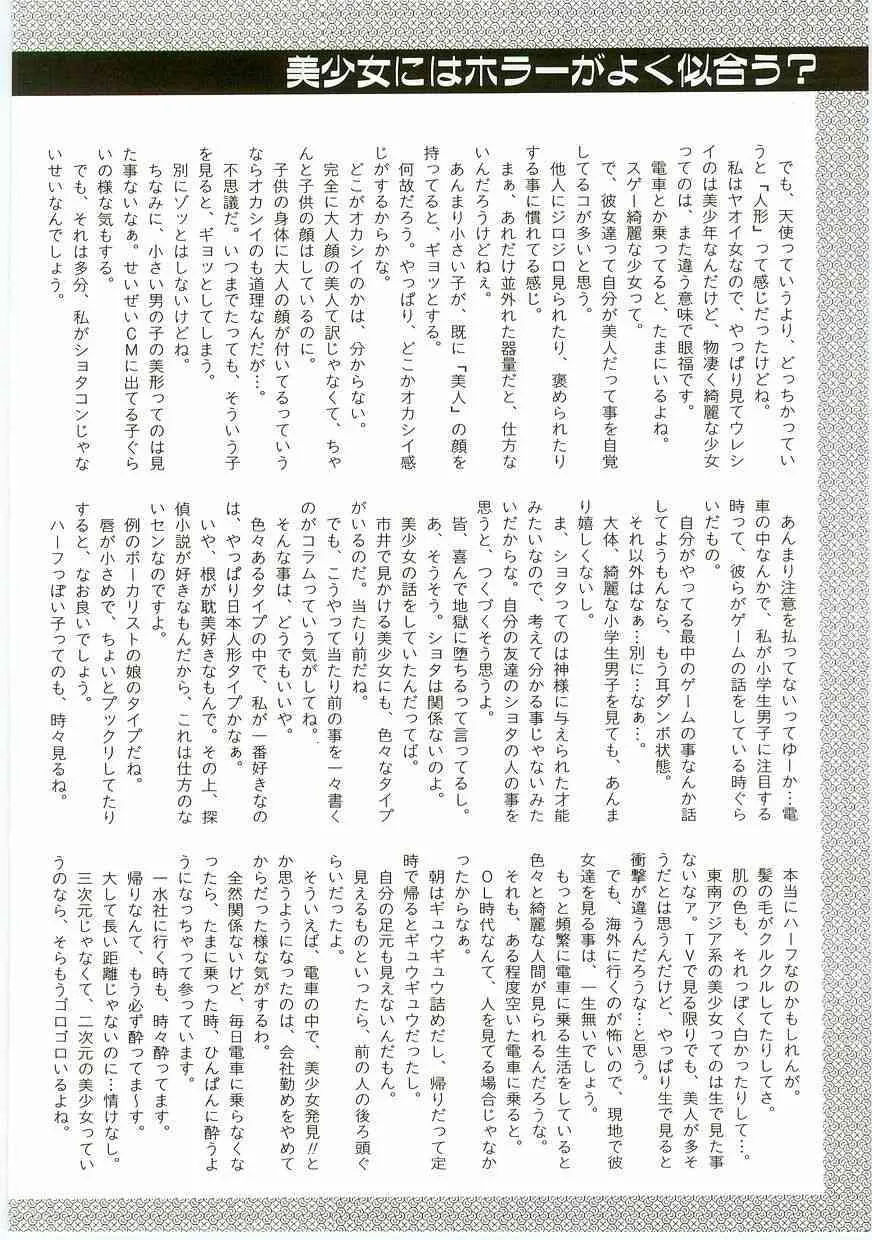 美少女にはホラーがよく似合う？
でも、天使っていうより、どっちかってい
うと『人形』って感じだったけどね。
私はヤオイ女なので、やっぱり見てウレシ
イのは美少年なんだけど、物凄く綺麗な少女
ってのは、また違う意味で眼福です。
電車とか乗ってると、たまにいるよね。
スゲー綺麗な少女って。
で、彼女達って自分が美人だって事を自覚
してるコが多いと思う。
他人にジロジロ見られたり、褒められたり
する事に慣れてる感じ。
まぁ、あれだけ並外れた器量だと、仕方な
いんだろうけどねぇ。
あんまり小さい子が、既に『美人』の顔を
持ってると、ギョッとする。
何故だろう。やっぱり、どこかオカシイ感
じがするからかな。
どこがオカシイのかは、分からない。
完全に大人顔の美人て訳じゃなくて、ちゃ
んと子供の顔はしているのに。
子供の身体に大人の顔が付いてるっていう
ならオカシイのも道理なんだが…。
不思議だ。いつまでたっても、そういう子
を見ると、ギョッとしてしまう。
別にゾッとはしないけどね。
ちなみに、小さい男の子の美形ってのは見
た事ないなぁ。せいぜいＣＭに出てる子ぐら
いの様な気もする。
でも、それは多分、私がショタコンじゃな
いせいなんでしょう。
あんまり注意を払ってないってゆーか…電
車の中なんかで、私が小学生男子に注目する
時って、彼らがゲームの話をしている時ぐら
いだもの。
自分がやってる最中のゲームの事なんか話
してようもんなら、もう耳ダンボ状態。
それ以外はなぁ…別に…なぁ…。
大体、綺麗な小学生男子を見ても、あんま
り嬉しくないし。
ま、ショタってのは神様に与えられた才能
みたいなので、考えて分かる事じゃないみた
いだからな。自分の友達のショタの人の事を
思うと、つくづくそう思うよ。
皆、喜んで地獄に堕ちるって言ってるし。
あ、そうそう。ショタは関係ないのよ。
美少女の話をしていたんだってば。
市井で見かける美少女にも、色々なタイプ
がいるのだ。当たり前だね。
でも、こうやって当たり前の事を一々書く
のがコラムっていう気がしてね。
そんな事は、どうでもいいや。
色々あるタイプの中で、私が一番好きなの
は、やっぱり日本人形タイプかなぁ。
いや、根が耽美好きなもんで。その上、探
偵小説が好きなもんだから、これは仕方のな
いセンなのですよ。
例のボーカリストの娘のタイプだね。
唇が小さめで、ちょいとプックリしてたり
すると、なお良いでしょう。
ハーフっぽい子ってのも、時々見るね。
本当にハーフなのかもしれんが。
髪の毛がクルクルしてたりしてさ。
肌の色も、それっぽく白かったりして…。
東南アジア系の美少女ってのは生で見た事
ないなァ。ＴＶで見る限りでも、美人が多そ
うだとは思うんだけど、やっぱり生で見ると
衝撃が違うんだろうな…と思う。
でも、海外に行くのが怖いので、現地で彼
女達を見る事は、一生無いでしょう。
もっと頻繁に電車に乗る生活をしていると
色々と綺麗な人間が見られるんだろうな。
それも、ある程度空いた電車に乗ると。
ＯＬ時代なんて、人を見てる場合じゃなか
ったからなぁ。
朝はギュウギュウ詰めだし、帰りだって定
時で帰るとギュウギュウだったし。
自分の足元も見えないんだもん。
見えるものといったら、前の人の後ろ頭ぐ
らいだったよ。
そういえば、電車の中で、美少女発見!!と
か思うようになったのは、会社勤めをやめて
からだった様な気がするわ。
全然関係ないけど、毎日電車に乗らなくな
ったら、たまに乗った時、ひんぱんに酔うよ
うになっちゃって参っています。
一水社に行く時も、時々酔ってます。
帰りなんて、もう必ず酔ってま〜す。
大して長い距離じゃないのに…情けなし。
三次元じゃなくて、二次元の美少女ってい
うのなら、そらもうゴロゴロいるよね。